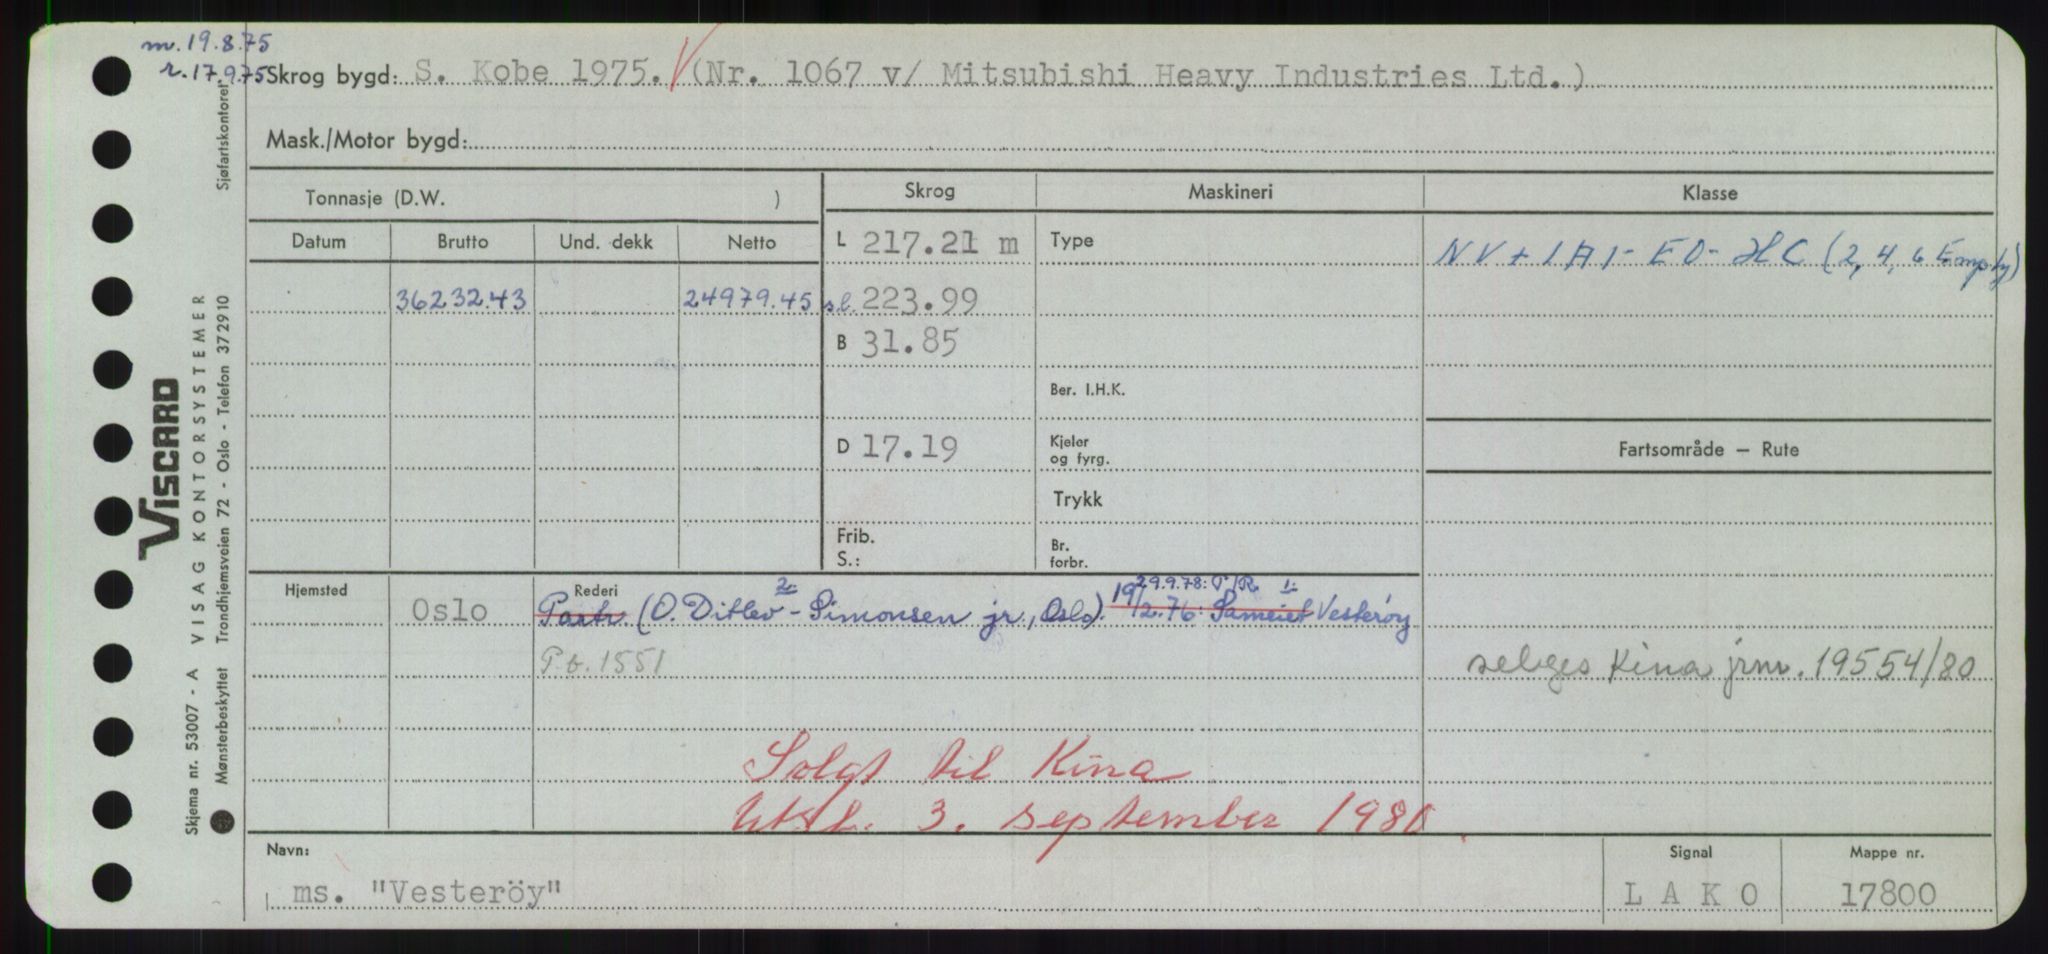 m. 19.8.75
r. 17.9.75
Skrog bygd: S. Kobe 1975. (Nr. 1067 v/ Mitsubishi Heavy Industries Ltd.)
Mask./Motor bygd:
Tonnasje (D.W. )
Skrog
Maskineri
Klasse
Datum
Brutto
Und. dekk
Netto
L 217.21 m
Type
NV + 1A1 - EO - HC (2, 4, 6 Empty)
36232.43
24979.45
sl. 223.99
B 31.85
Ber. I.H.K.
D 17.19
Kjeler
og fyrg.
Fartsområde — Rute
Trykk
Frib.
S.:
Br.
forbr.
Hjemsted
Oslo
Rederi
2.
29.9.78: P/R 1.
Partr. (O. Ditlev-Simonsen jr., Oslo). 19/2.76: Sameiet Vesterøy
P.t. 1551
selges Kina jrnr. 19554/80
Solgt til Kina
Utsl. 3. september 1980.
Navn:
ms. "Vesteröy"
Signal
LAKO
Mappe nr.
17800
Sjøfartskontoret
VISCARD
VISAG KONTORSYSTEMER
Trondhjemsveien 72 - Oslo - Telefon 372910
Skjema nr. 53007 - A
Mønsterbeskyttet